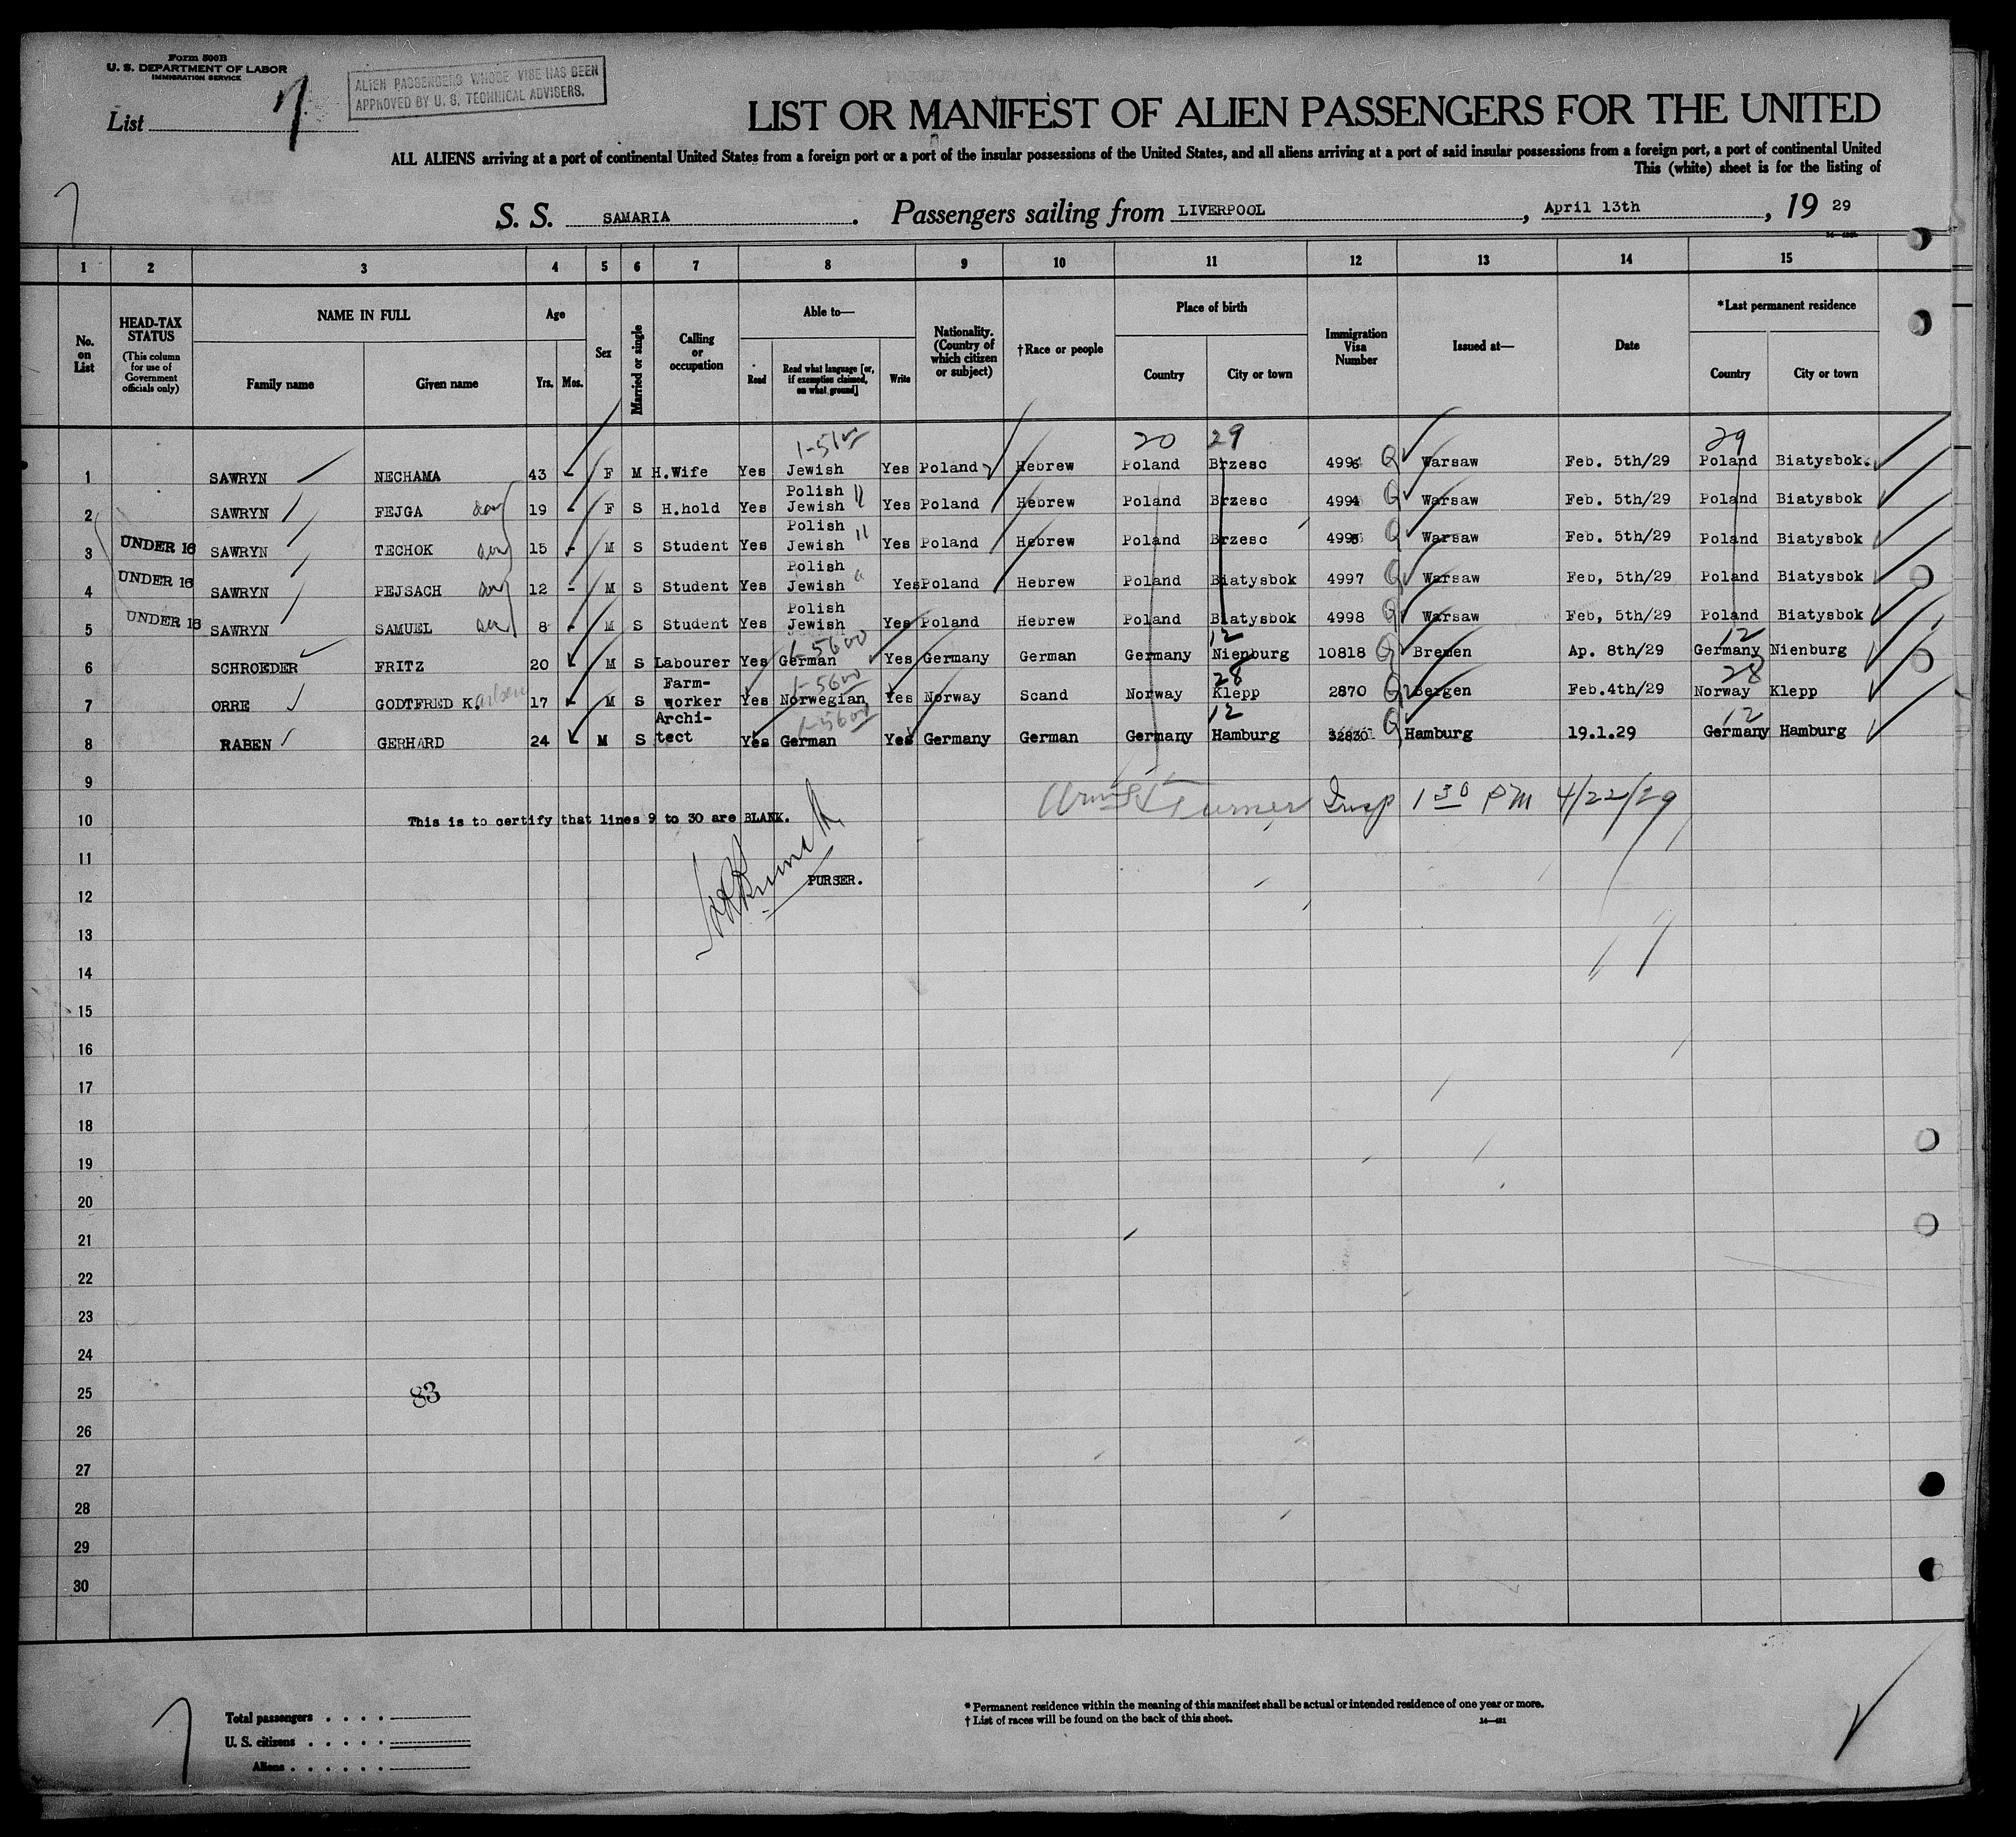 Form 500B
U. S. DEPARTMENT OF LABOR
IMMIGRATION SERVICE
ALIEN PASSENGERS WHOSE VISE HAS BEEN
APPROVED BY U. S. TECHNICAL ADVISERS.
List 7
LIST OR MANIFEST OF ALIEN PASSENGERS FOR THE UNITED
ALL ALIENS arriving at a port of continental United States from a foreign port or a port of the insular possessions of the United States, and all aliens arriving at a port of said insular possessions from a foreign port, a port of continental United
This (white) sheet is for the listing of
7
S. S. SAMARIA. Passengers sailing from LIVERPOOL, April 13th, 19 29
1 2 3 4 5 6 7 8 9 10 11 12 13 14 15
No. on List
HEAD-TAX STATUS (This column for use of Government officials only)
NAME IN FULL Family name Given name
Age Yrs. Mos.
Sex
Married or single
Calling or occupation
Able to— Read Read what language [or, if exemption claimed, on what ground] Write
Nationality. (Country of which citizen or subject)
†Race or people
Place of birth Country City or town
Immigration Visa Number
Issued at—
Date
*Last permanent residence Country City or town
20 29 29
1 SAWRYN NECHAMA 43 - F M H.Wife Yes Jewish Yes Poland Hebrew Poland Brzesc Q Warsaw Feb. 5th/29 Poland Biatysbok.
2 SAWRYN FEJGA 19 - F S H.hold Yes Polish Jewish Yes Poland Hebrew Poland Brzesc 4994 Q Warsaw Feb. 5th/29 Poland Biatysbok
3 UNDER 16 SAWRYN TECHOK 15 - M S Student Yes Polish Jewish Yes Poland Hebrew Poland Brzesc Q Warsaw Feb. 5th/29 Poland Biatysbok
4 UNDER 16 SAWRYN PEJSACH 12 - M S Student Yes Polish Jewish Yes Poland Hebrew Poland Biatysbok 4997 Q Warsaw Feb, 5th/29 Poland Biatysbok
5 UNDER 16 SAWRYN SAMUEL 8 - M S Student Yes Polish Jewish Yes Poland Hebrew Poland Biatysbok 4998 Q Warsaw Feb, 5th/29 Poland Biatysbok
1-5600 12 12
6 SCHROEDER FRITZ 20 M S Labourer Yes German Yes Germany German Germany Nienburg 10818 Q Bremen Ap. 8th/29 Germany Nienburg
1-5600 28 28
7 ORRE GODTFRED K. 17 M S Farm-worker Yes Norwegian Yes Norway Scand Norway Klepp 2870 Q Bergen Feb.4th/29 Norway Klepp
1-5600 12 12
8 RABEN GERHARD 24 M S Archi-tect Yes German Yes Germany German Germany Hamburg Q Hamburg 19.1.29 Germany Hamburg
9
Turner Insp 1 30 PM 4/22/29
10 This is to certify that lines 9 to 30 are BLANK.
11
PURSER.
12
13
14
15
16
17
18
19
20
21
22
23
24
25 83
26
27
28
29
30
7
Total passengers . . . .
U. S. citizens . . . . .
Aliens . . . . . .
* Permanent residence within the meaning of this manifest shall be actual or intended residence of one year or more.
† List of races will be found on the back of this sheet.